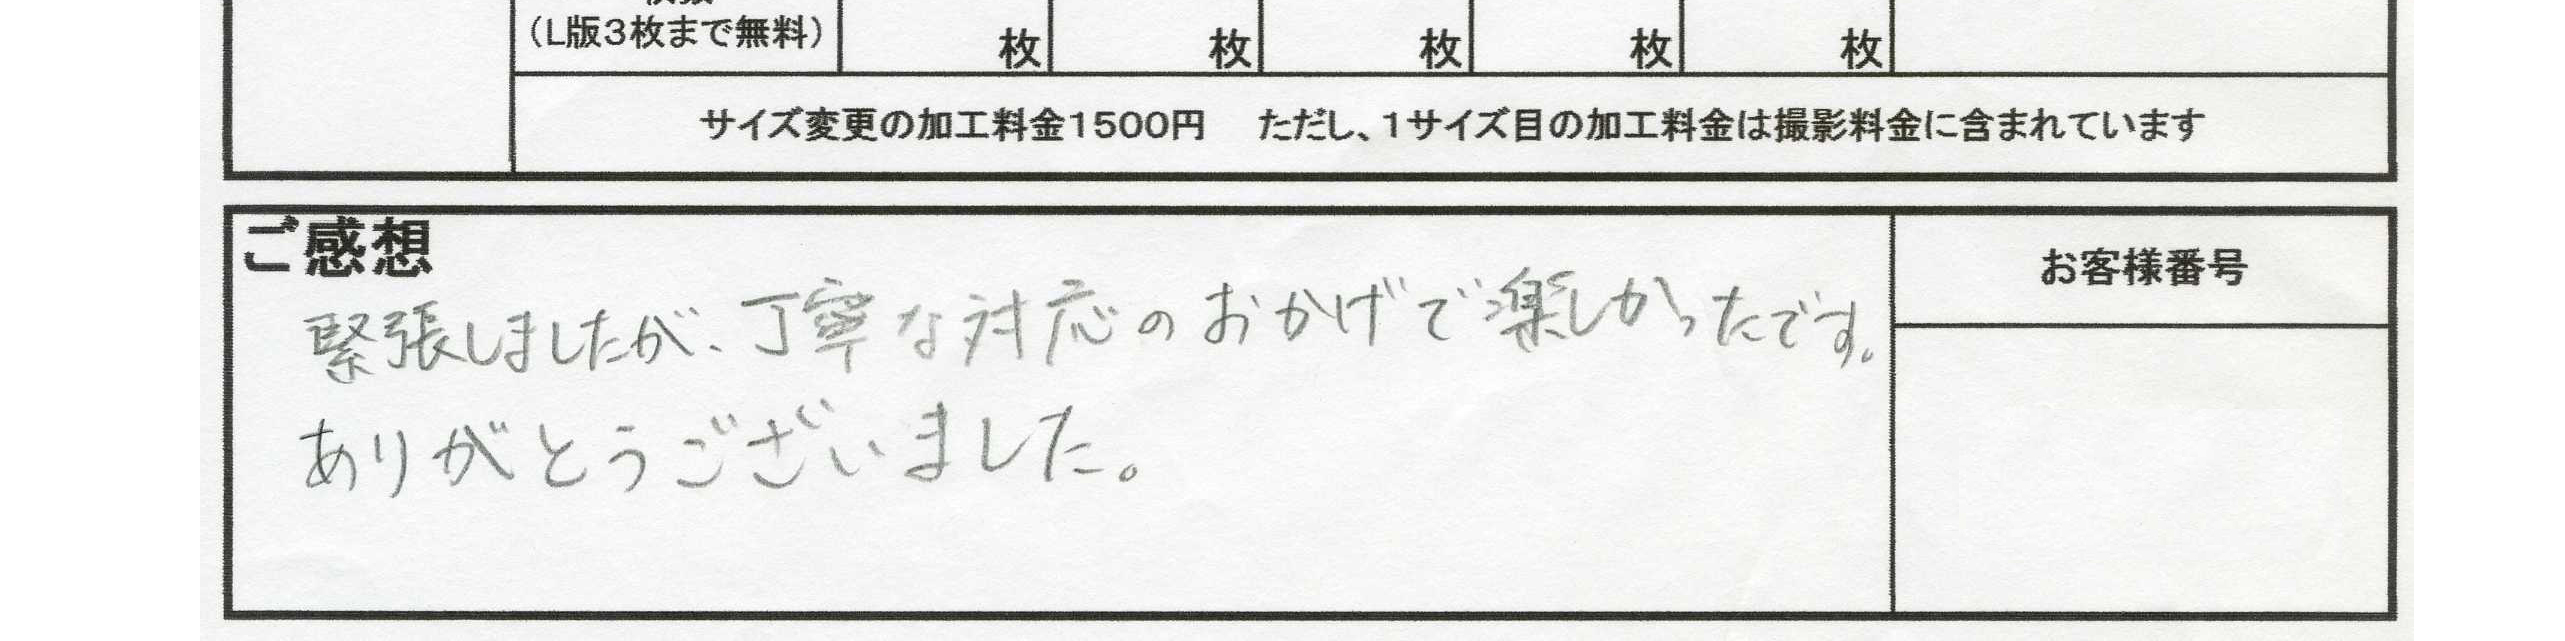 （L版3枚まで無料）
枚 枚 枚 枚 枚
サイズ変更の加工料金1500円　ただし、1サイズ目の加工料金は撮影料金に含まれています
ご感想
お客様番号
緊張しましたが、丁寧な対応のおかげで楽しかったです。
ありがとうございました。